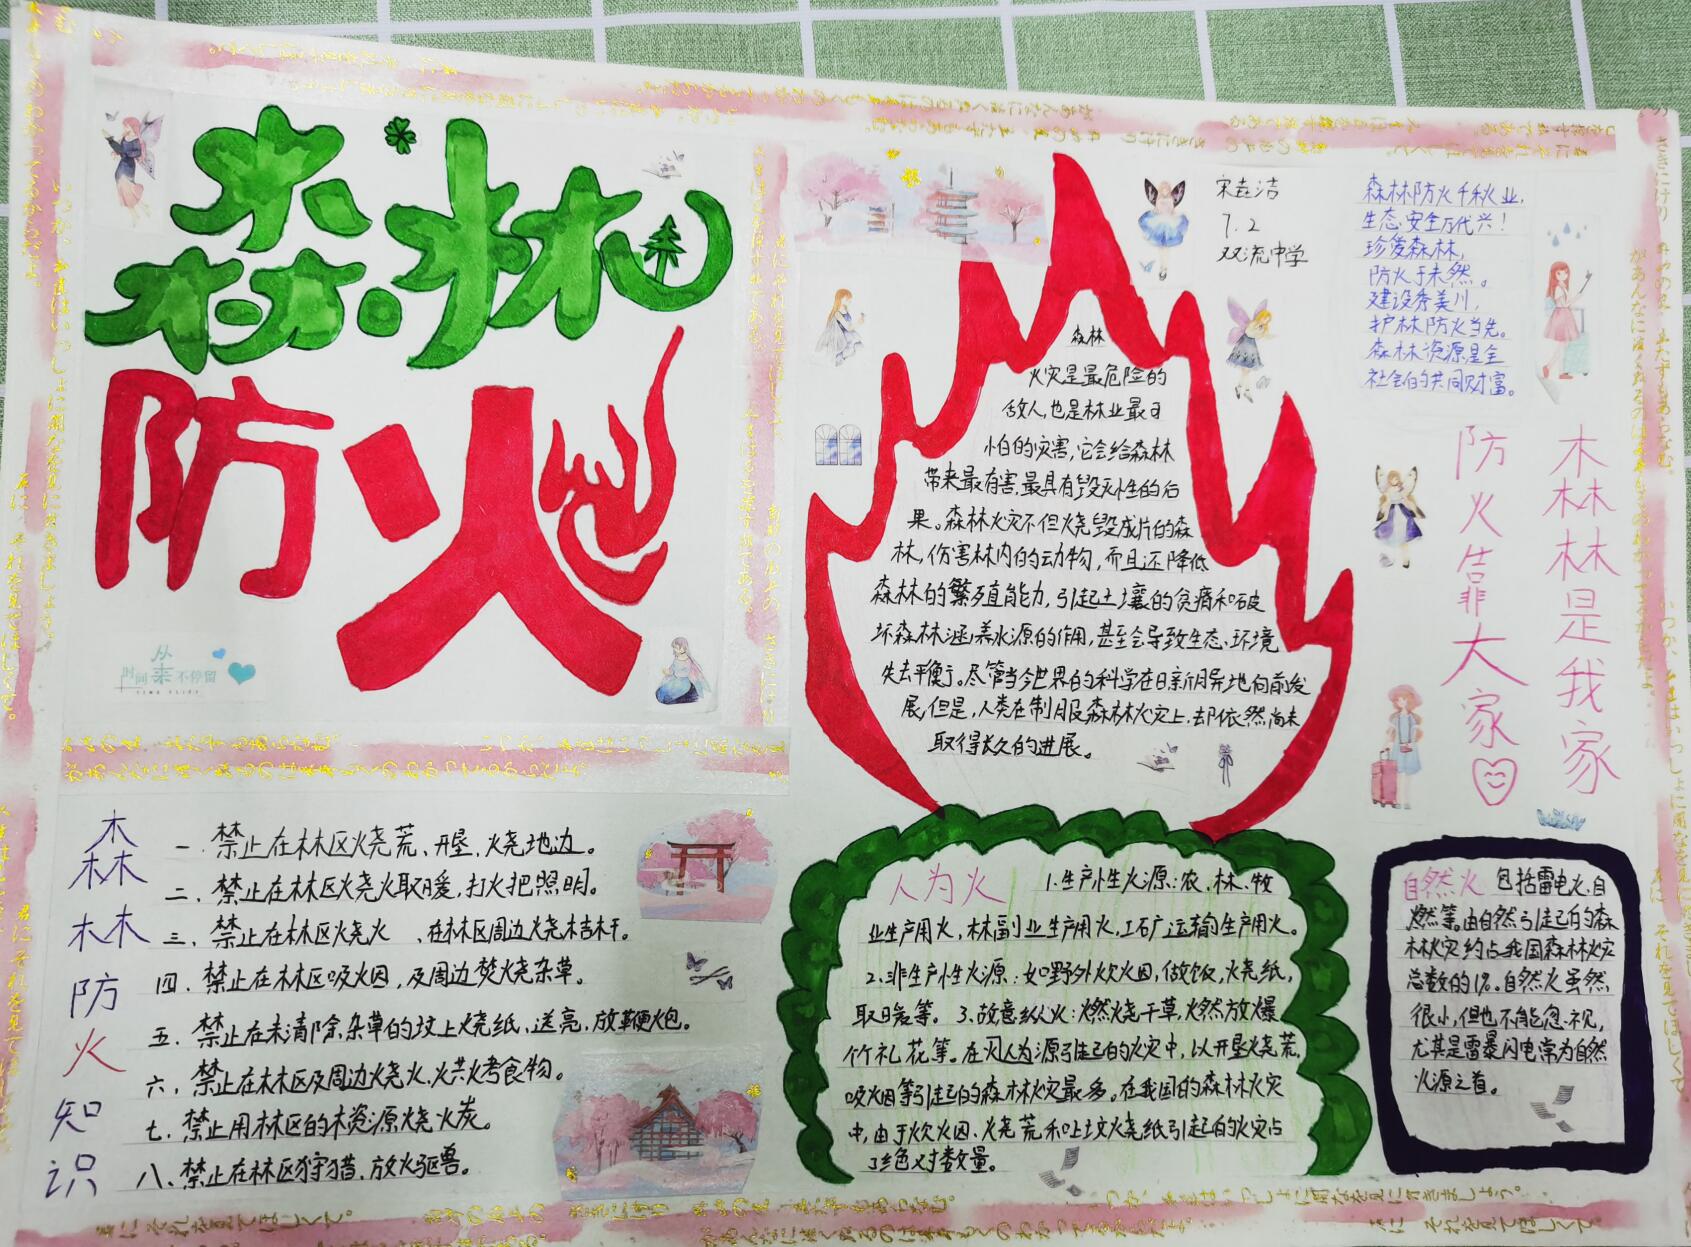 森林
防火
从来
时间 不停留
TIME FLIES
森林防火知识
一.禁止在林区火烧荒、开垦,火烧地边。
二、禁止在林区火烧火取暖,打火把照明。
三、禁止在林区火烧火 、在林区周边火烧桔杆。
四、禁止在林区吸火因,及周边焚火烧杂草。
五、禁止在未清除杂草的坟上火烧纸、送亮,放鞭炮。
六、禁止在林区及周边火烧火、火共火考食物。
七、禁止用林区的木资源火烧火炭。
八、禁止在林区狩猎,放火驱兽。
森林
火灾是最危险的
敌人,也是林业最可
怕的灾害,它会给森林
带来最有害,最具有毁灭性的后
果。森林火灾不但烧毁成片的森
林,伤害林内的动物,而且还降低
森林的繁殖能力,引起土壤的贫瘠和破
坏森林涵养水源的作用,甚至会导致生态、环境
失去平衡于。尽管当今世界的科学在日新月异地向前发
展,但是,人类在制服森林火灾上,却依然尚未
取得长久的进展。
宋垚洁
7.2
双流中学
森林防火千秋业,
生态安全万代兴!
珍爱森林,
防火于未然。
建设秀美川,
护林防火当先。
森林资源是全
社会的共同财富。
森林是我家
防火靠大家
人为火 1.生产性火源:农、林、牧
业生产用火,林副业生产用火,工矿运输的生产用火。
2.非生产性火源:如野外炊火因,做饭,火烧纸,
取暖等。3.故意纵火:燃烧干草,火然放爆
竹礼花等。在人为源引起的火灾中,以开垦烧荒、
吸火因等引起的森林火灾最多。在我国的森林火灾
中,由于炊火因、火烧荒和上坟火烧纸引起的火灾占
了绝对数量。
自然火 包括雷电火、自
燃等。由自然引起的森
林火灾约占我国森林火灾
总数的1%。自然火虽然
很小,但也不能忽视,
尤其是雷暴闪电常为自然
火源之首。